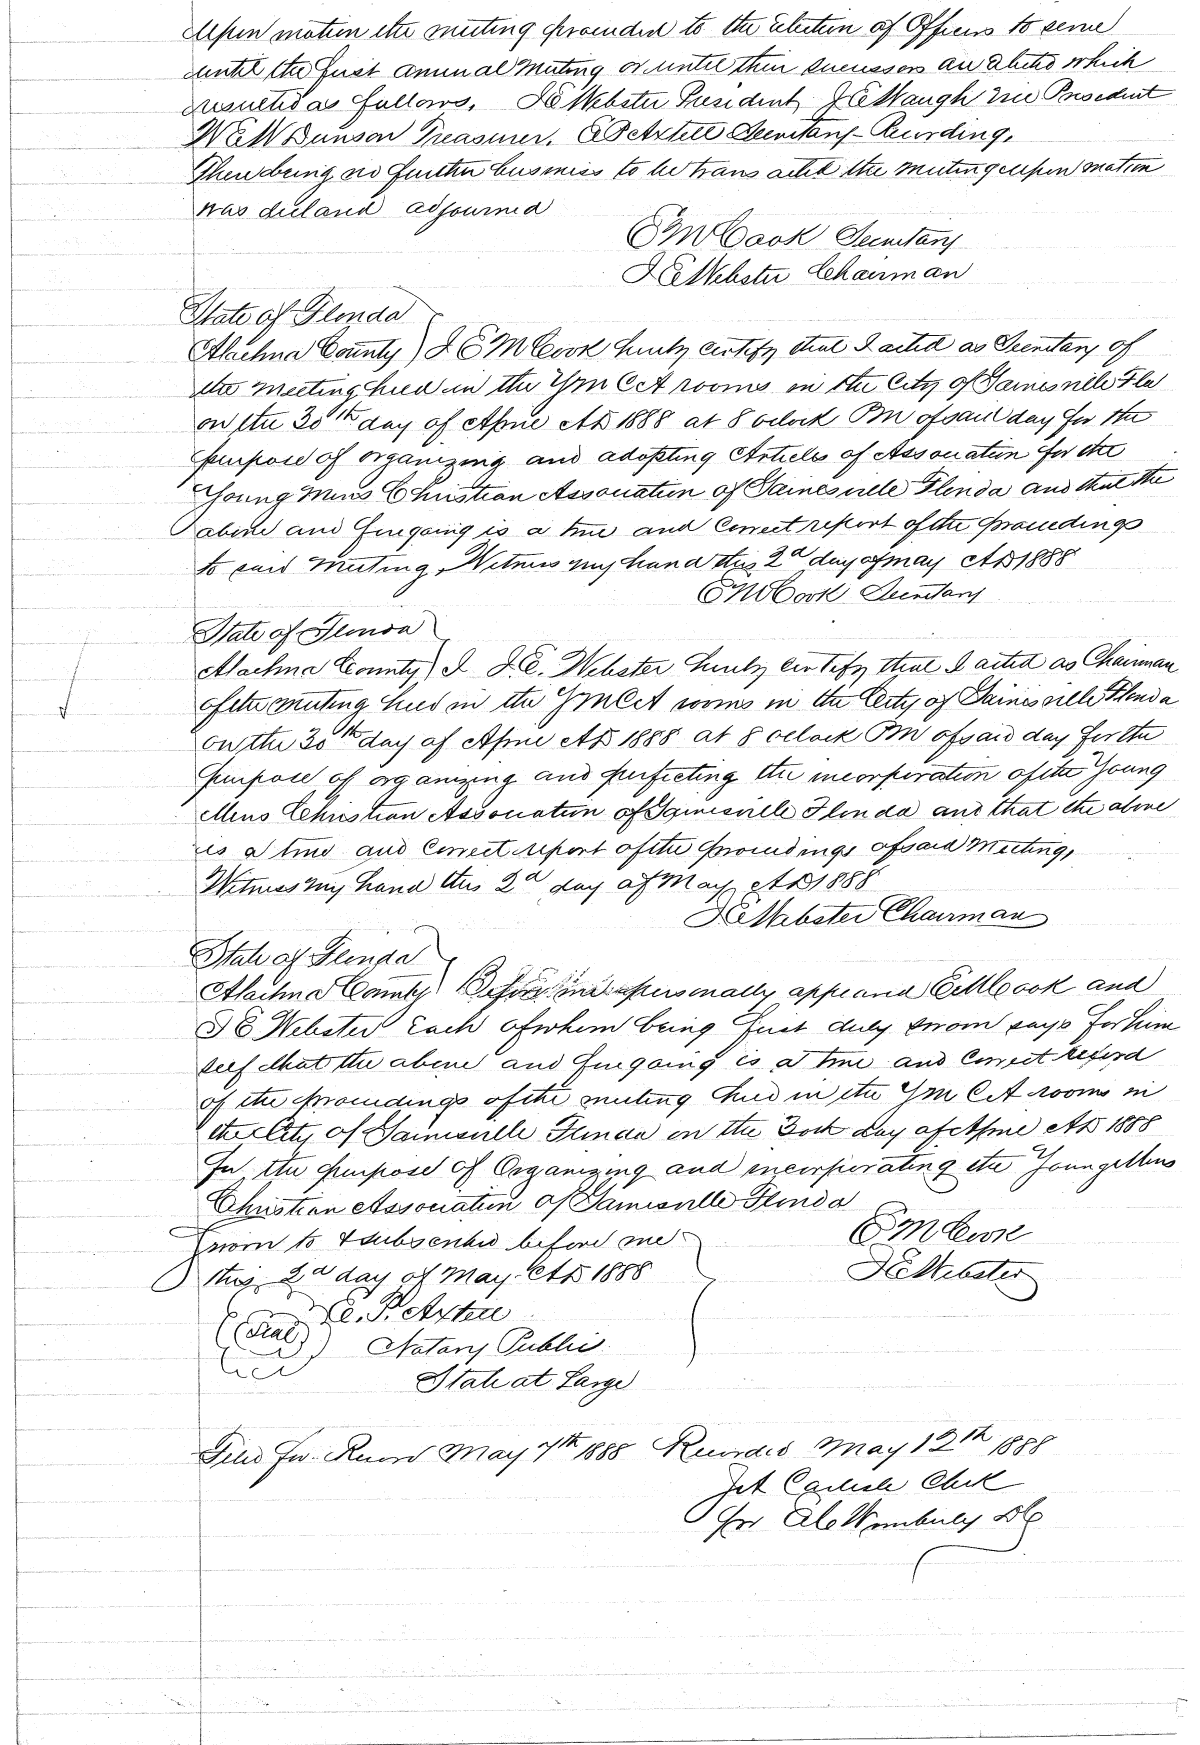 Upon motion the meeting proceeded to the election of Officers to serve
until the first annual Meeting or until their successors are elected which
resulted as follows. J E Webster President, J E Waugh Vice President
W W Dunson Treasurer. C P Axtell Secretary - Recording.
There being no further business to be transacted the meeting upon motion
was declared adjourned
E M Cook Secretary
J E Webster Chairman
State of Florida
Alachua County ) I E M Cook hereby certify that I acted as Secretary of
the Meeting held in the Y M C A rooms in the City of Gainesville Fla
on the 30th day of April AD 1888 at 8 oclock PM of said day for the
purpose of organizing and adopting Articles of Association for the
Young Mens Christian Association of Gainesville Florida and that the
above and foregoing is a true and correct report of the proceedings
to said Meeting, Witness my hand this 2d day of May AD 1888
E M Cook Secretary
State of Florida
Alachua County ) I J. E. Webster hereby certify that I acted as Chairman
of the meeting held in the Y M C A rooms in the City of Gainesville Florida
on the 30th day of April AD 1888 at 8 oclock PM of said day for the
purpose of organizing and perfecting the incorporation of the Young
Mens Christian Association of Gainesville Florida and that the above
is a true and correct report of the proceedings of said Meeting,
Witness my hand this 2d day of May AD 1888
J E Webster Chairman
State of Florida
Alachua County ) Before me personally appeared E M Cook and
J E Webster Each of whom being first duly sworn says for him
self that the above and foregoing is a true and correct record
of the proceedings of the meeting held in the Y M C A rooms in
the City of Gainesville Florida on the 30th day of April AD 1888
For the purpose of Organizing and incorporating the Young Mens
Christian Association of Gainesville Florida
Sworn to & subscribed before me E M Cook
this 2d day of May AD 1888 J E Webster
(Seal) C. P. Axtell
Notary Public
State at Large
Filed for Record May 7th 1888 Recorded May 12th 1888
Carlisle Clerk
for Wimberly DC